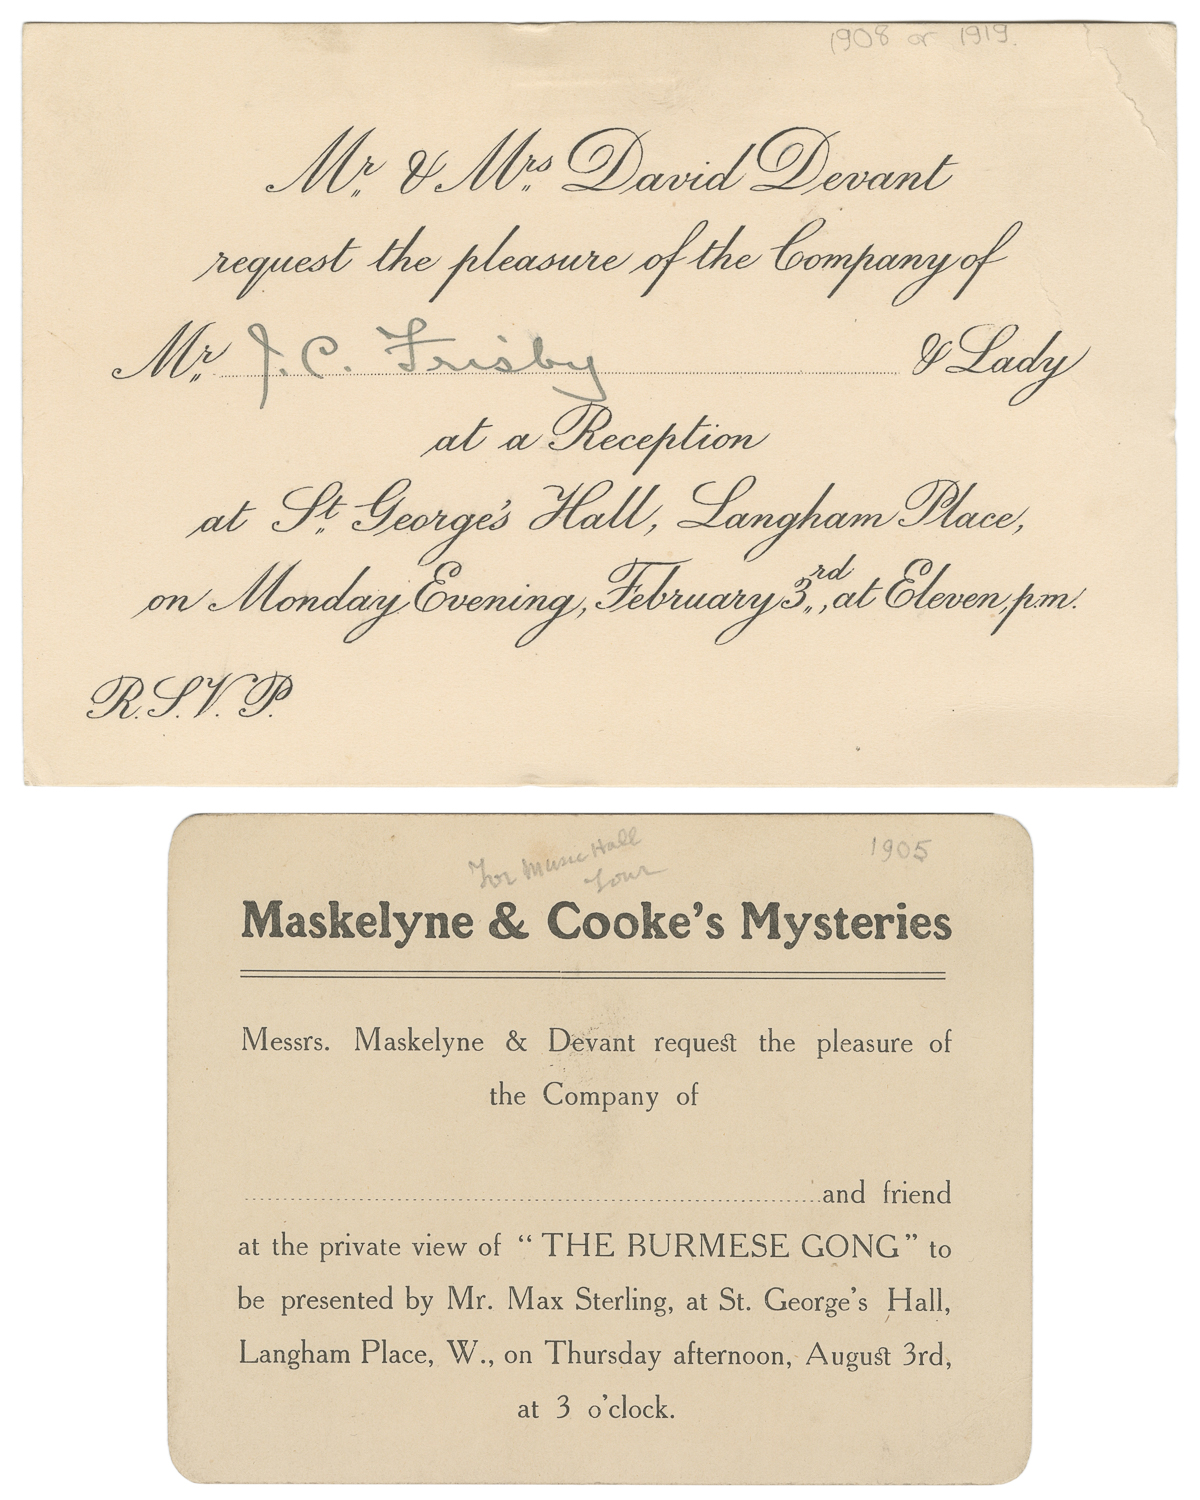 1908 or 1919.
Mr. & Mrs. David Devant
request the pleasure of the Company of
Mr. J. C. Frisby & Lady
at a Reception
at St. George's Hall, Langham Place,
on Monday Evening, February 3rd, at Eleven, p.m.
R.S.V.P.
For Music Hall
Tour
1905
Maskelyne & Cooke's Mysteries
Messrs. Maskelyne & Devant request the pleasure of
the Company of
and friend
at the private view of "THE BURMESE GONG" to
be presented by Mr. Max Sterling, at St. George's Hall,
Langham Place, W., on Thursday afternoon, August 3rd,
at 3 o'clock.